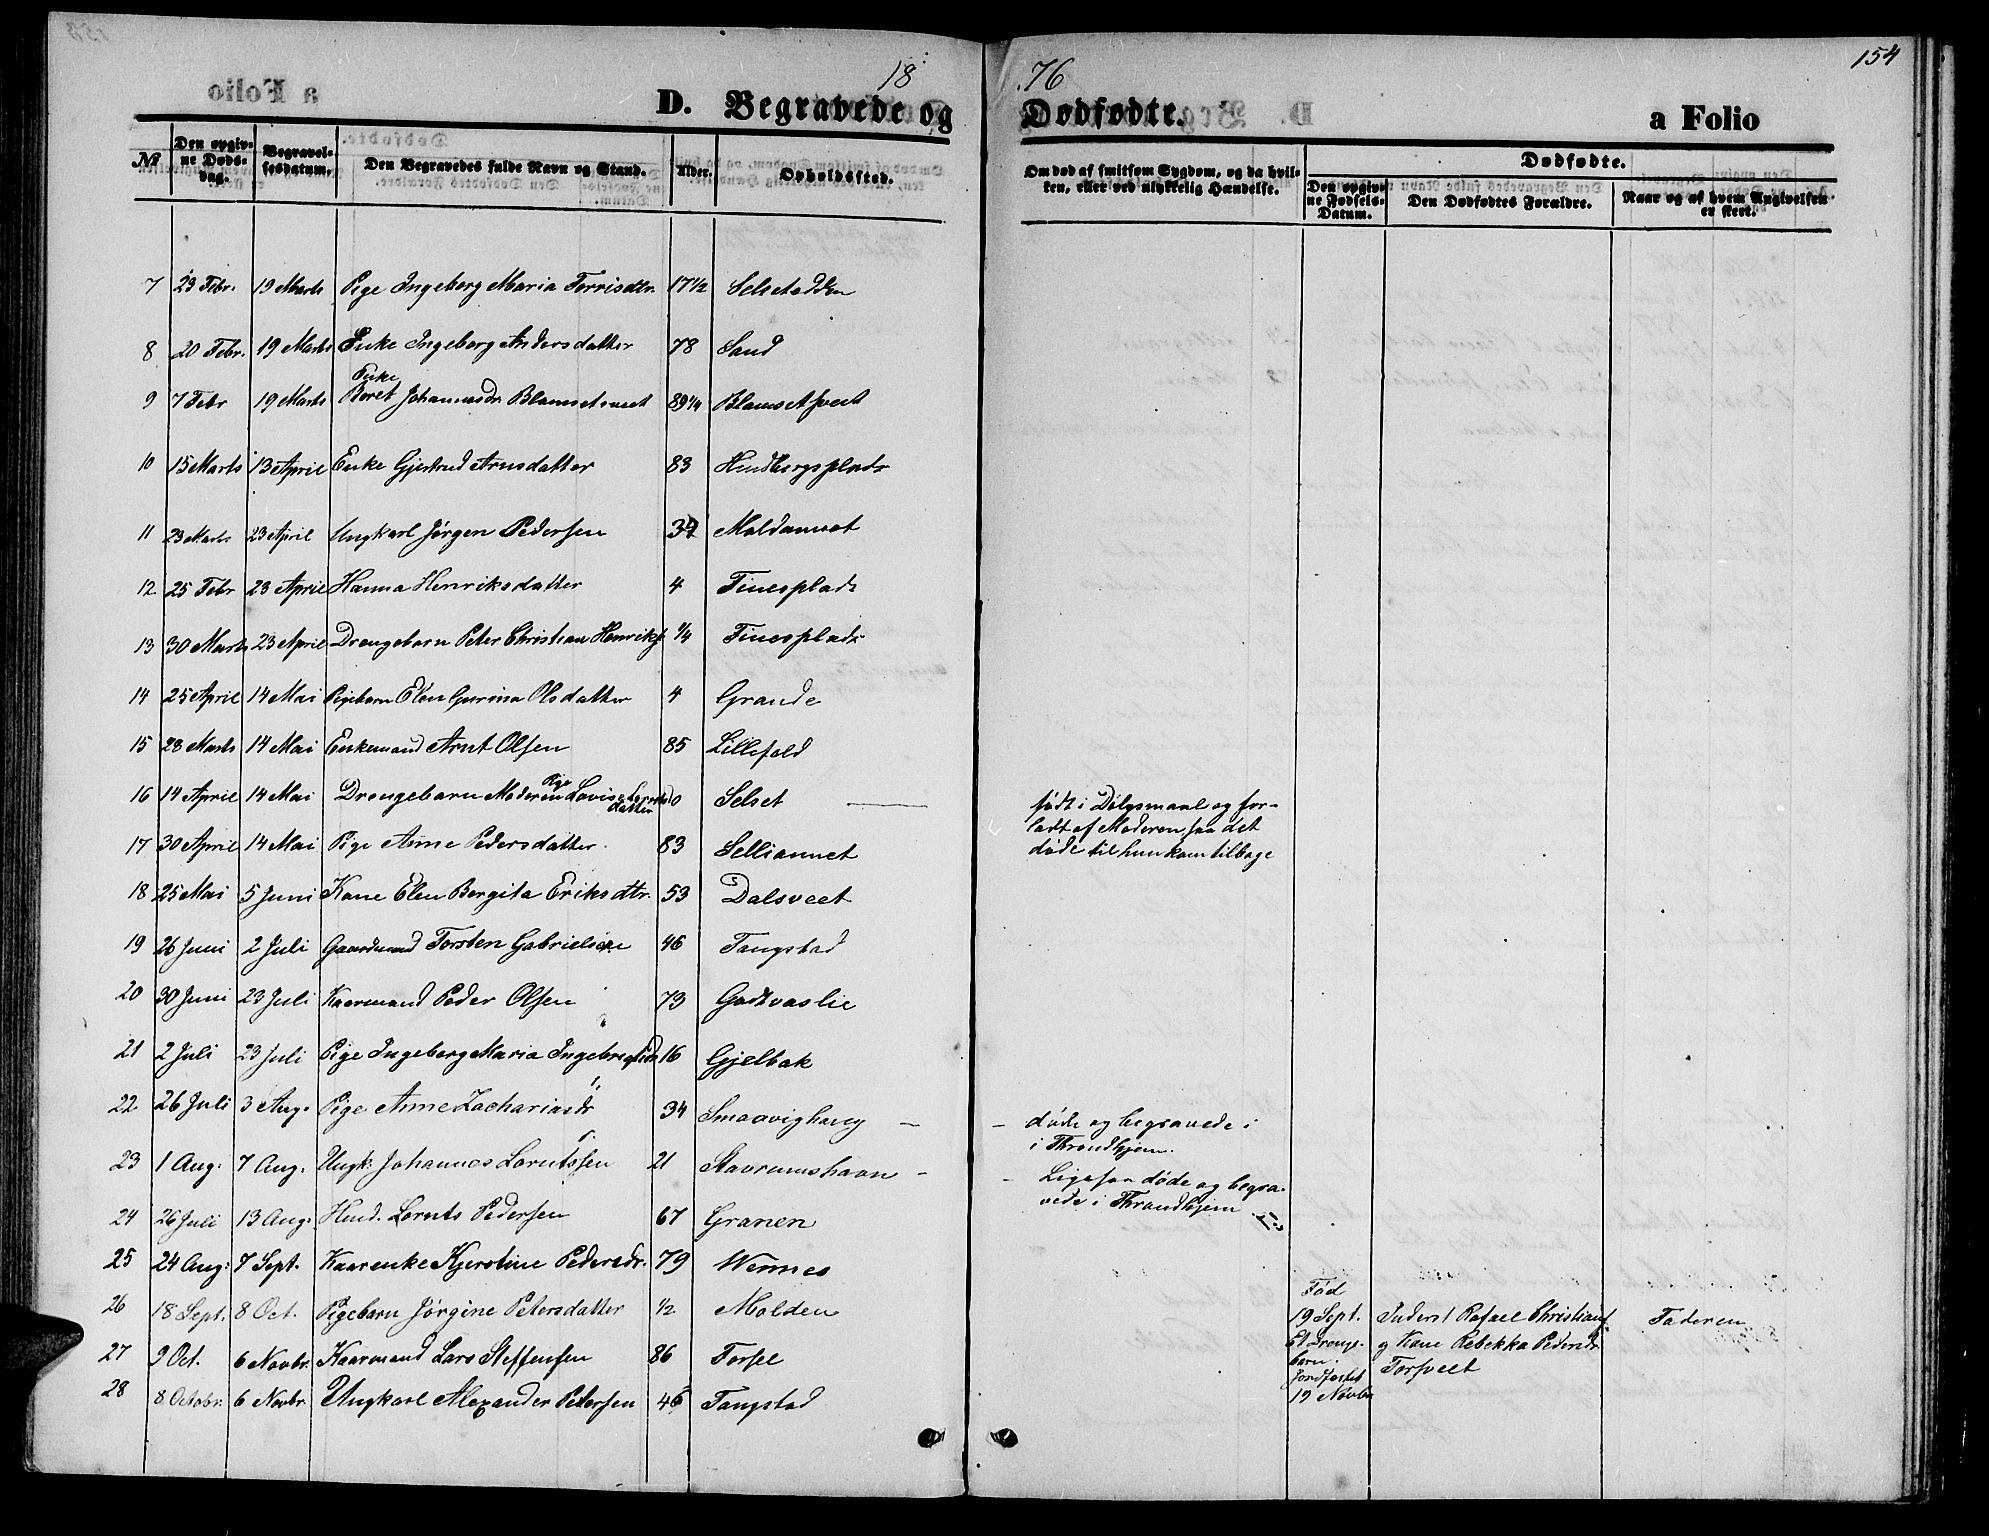 18 76
154
D. Begravede og Dødfødte. a Folio
No.
Den opgivne Døds-dag.
Begravelsesdatum.
Den Begravedes fulde Navn og Stand.
Alder.
Opholdssted.
Om død af smitsom Sygdom, og da hvilken, eller ved ulykkelig Hændelse.
Dødfødte.
Den opgivne Fødsels-Datum.
Den Dødfødtes Forældre.
Naar og af hvem Angivelsen er skeet.
7 29 Febr. 19 Marts Pige Ingeborg Maria Torrisdtr. 17 1/2
8 20 Febr. 19 Marts Enke Ingeborg Andersdatter 78 Sand
9 7 Febr 19 Marts Enke Beret Johannesdr. 89 1/4
10 15 Marts 13 April Enke Gjertrud Arnsdatter 83 Hindbergsplads
11 23 Marts 23 April Ungkarl Jørgen Pedersen Moldamoot
12 25 Febr 23 April Hanna Henriksdatter 4 Tinesplads
13 30 Marts 23 April Drengebarn Peter Christian Henriks. 1/4 Tinesplads
14 25 April 14 Mai Pigebarn Elen Gurina Olsdatter 4 Grande
15 28 Marts 14 Mai Enkemand Arnt Olsen 85 Lillefold
16 14 April 14 Mai Drengebarn Moderen Pige Lovise Lorentsdatter 0 Selset — født i Dølgsmaal og for-
ladt af Moderen saa det
døde til hun kom tilbage
17 30 April 14 Mai Pige Anne Pedersdatter. 83 Selliamoet
18 25 Mai 5 Juni Kone Elen Bergita Eriksdtr. 53 Dalsveet
19 26 Juni 2 Juli Gaardmand Torsten Gabrielsen 46 Tangstad
20 30 Juni 23 Juli Kaarmand Peder Olsen 73 Godtvaslie
21 2 Juli 23 Juli Pige Ingeborg Maria Ingebrigtsdr 16 Gjelbak
22 26 Juli 3 Aug. Pige Anne Zachariasdr 34 Smaavighaug — døde og begravede i
i Throndhjem.
23 1 Aug: 7 Aug. Ungk. Johannes Lorntssen 21 Stavrumshavn — Ligesaa døde og begra-
vede i Throndhjem
24 26 Juli 13 Aug. Husmd. Lornts Pedersen 67 Granen
25 24 Aug: 7 Sept. Kaarenke Kjerstine Pedersdr. 79 Wennes
26 18 Sept. 8 Oct. Pigebarn Jørgine Petersdatter 1/2 Molden
27 9 Oct. 6 Novbr. Kaarmand Lars Steffensen 86 Forsee
28 8 Octobr. 6 Novbr. Ungkarl Alexander Petersen 46 Tangstad
Fød
19 Sept. Inderst Rafael Christians. Faderen
Et Drenge- og Kone Rebekka Pedersdr
barn. Forsveet
Jordfæstet
19 Novbr